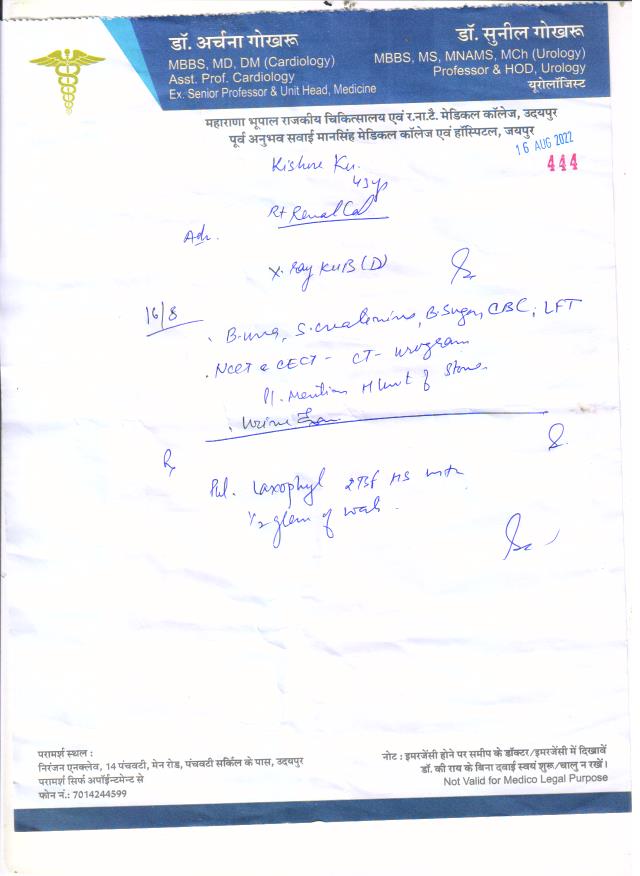 डॉ. अर्चना गोखरू
MBBS, MD, DM (Cardiology)
Asst. Prof. Cardiology
Ex. Senior Professor & Unit Head, Medicine
डॉ. सुनील गोखरू
MBBS, MS, MNAMS, MCh (Urology)
Professor & HOD, Urology
यूरोलॉजिस्ट
महाराणा भूपाल राजकीय चिकित्सालय एवं र.ना.टै. मेडिकल कॉलेज, उदयपुर
पूर्व अनुभव सवाई मानसिंह मेडिकल कॉलेज एवं हॉस्पिटल, जयपुर
16 AUG 2022
444
Kishore Ku.
43y
Rt Renal Cal
Adv.
X-Ray KUB (D)
16/8
B. urea, S. creatinine, B. Sugar, CBC, LFT
NCCT & CECT - CT - urogram
Pl. Mention H Unit of Stone
Urine Exam
Rx
Pul. Laxophyl 2 Tsf HS with
1/2 glass of water
परामर्श स्थल :
निरंजन एनक्लेव, 14 पंचवटी, मेन रोड, पंचवटी सर्किल के पास, उदयपुर
परामर्श सिर्फ अपॉईन्टमेन्ट से
फोन नं.: 7014244599
नोट : इमरजेंसी होने पर समीप के डॉक्टर/इमरजेंसी में दिखावें
डॉ. की राय के बिना दवाई स्वयं शुरू/चालु न रखें।
Not Valid for Medico Legal Purpose